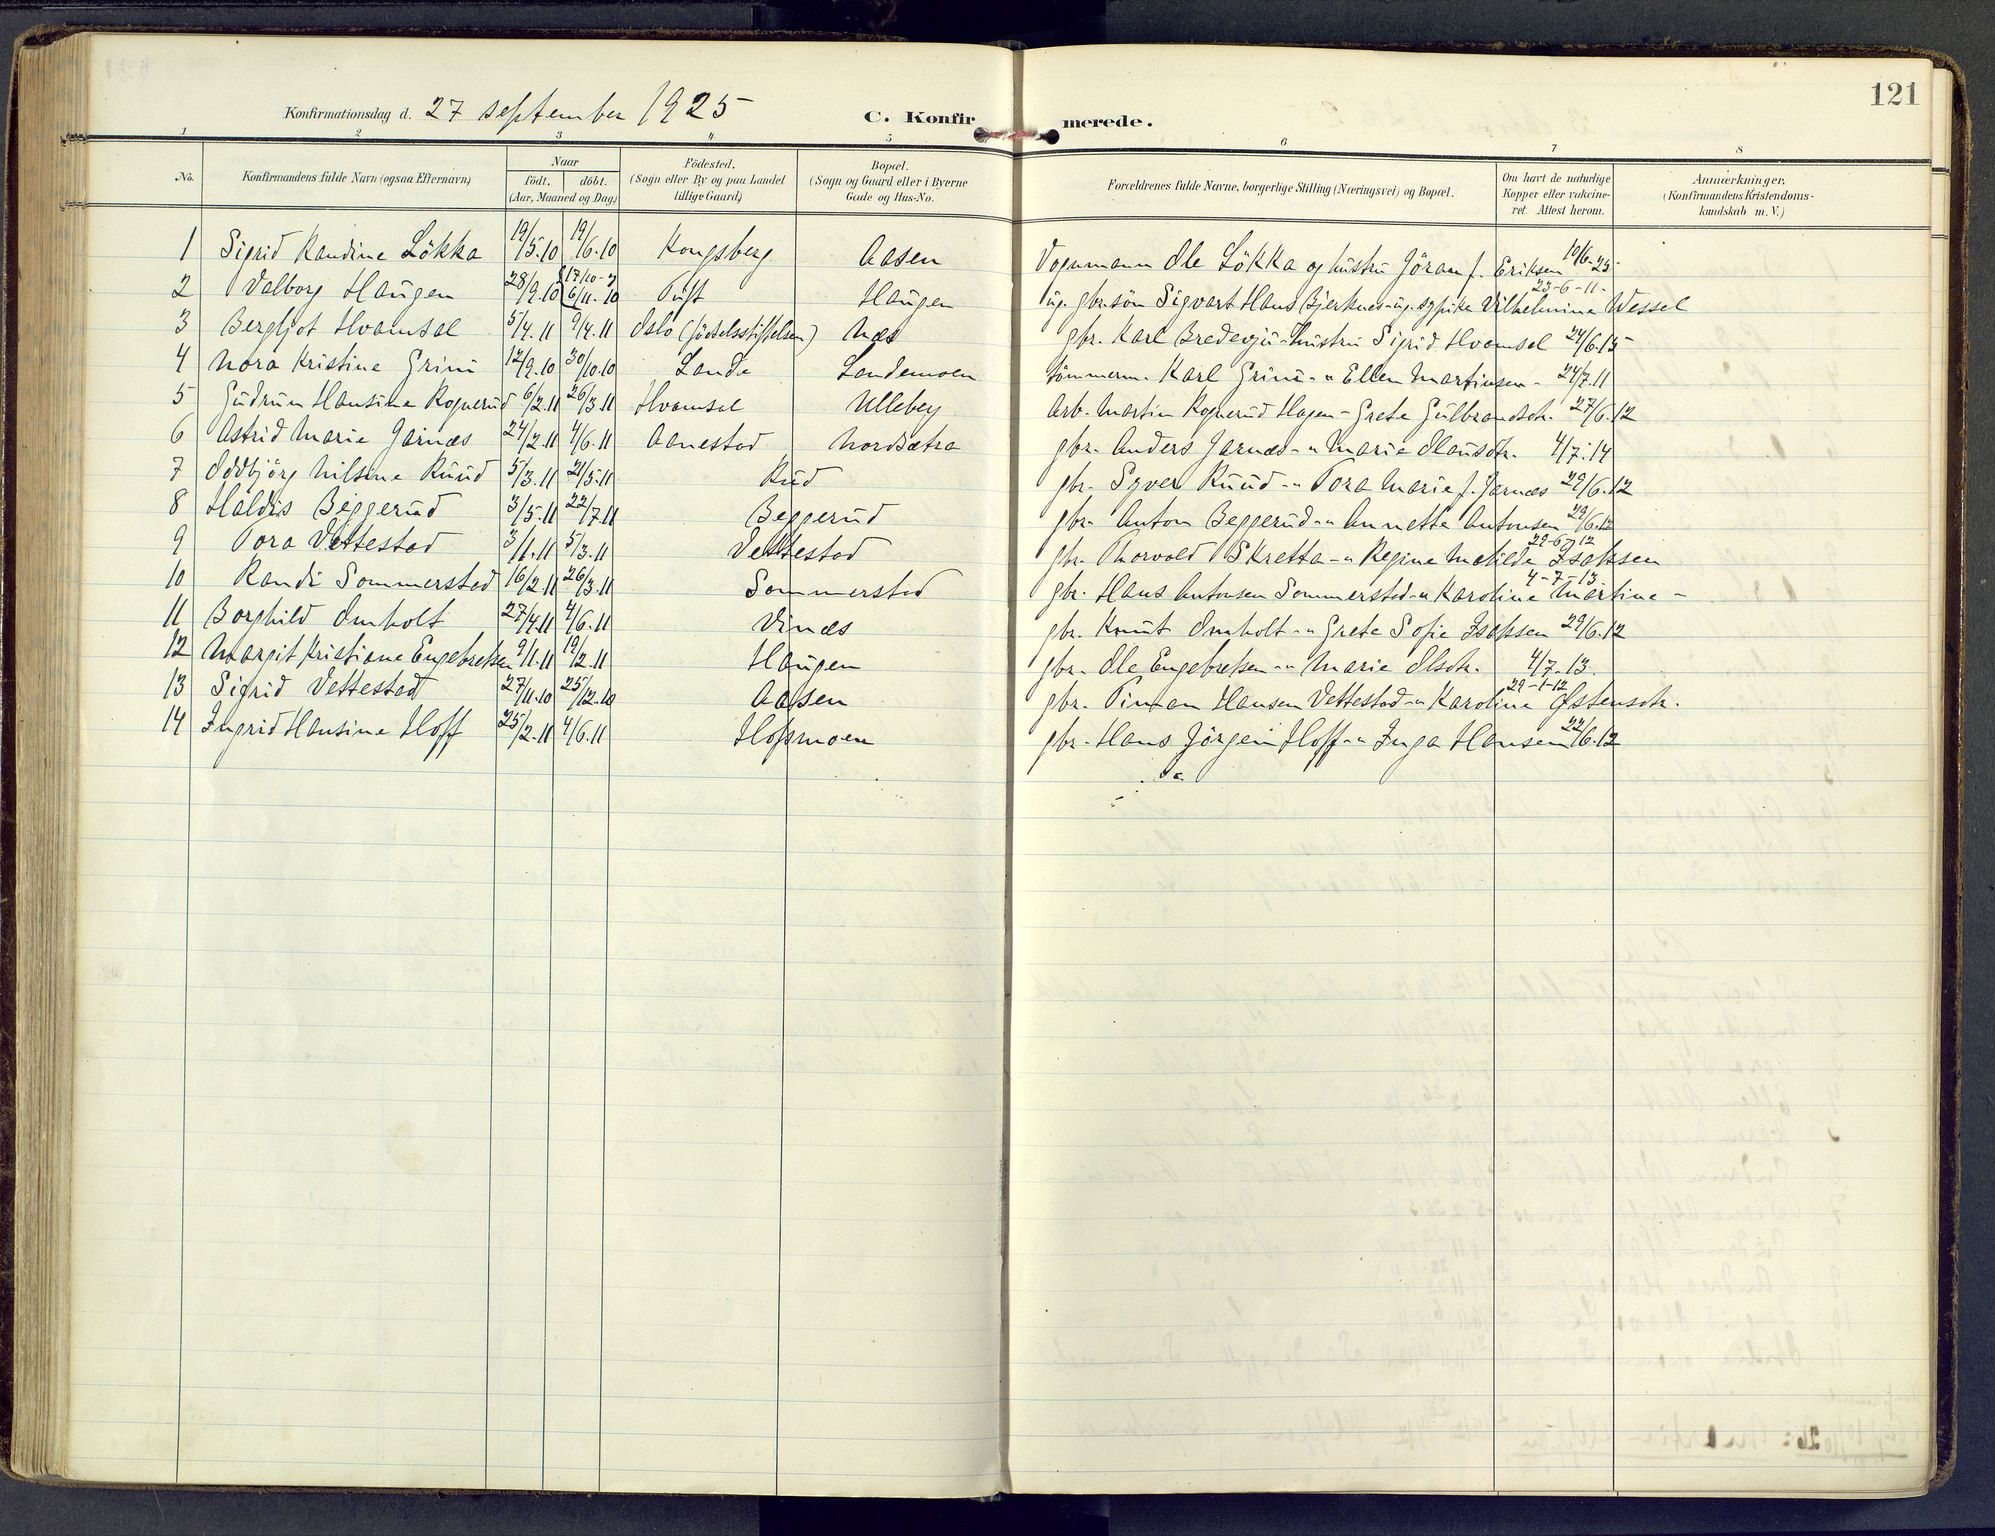 121
Konfirmationsdag d. 27 september 1925 C. Konfirmerede.
1 2 3 4 5 6 7 8
No. Konfirmandens fulde Navn (ogsaa Efternavn) Naar födt. döbt. (Aar, Maaned og Dag) Födested. (Sogn eller By og paa Landet tillige Gaard) Bopæl. (Sogn og Gaard eller i Byerne Gade og Hus-No. Forældrenes fulde Navne, borgerlige Stilling (Næringsvei) og Bopæl. Om havt de naturlige Kopper eller vakcineret. Attest herom. Anmærkninger, (Konfirmandens Kristendomskundskab m. V.)
1 Sigrid Randine Lökka 19/5.10 19/6.10 Kongsberg Aasen Vognmann Ole Lökka og hustru Jöran f. Eriksen 10/6-25
2 Valborg Haugen 28/9.10 6/11.10 Tuft Haugen ug. gbr.sön Sigvart Hans Bjerknes - ug. sypike Vilhelmine Wessel 23-6-11-
3 Bergljot Hvamsal 5/4.11 9/4.11 Oslo (födselsstiftelsen) Næs gbr. Karl Bredevju - Hustru Sigrid Hvamsal 24/6.15
4 Nora Kristine Grini 12/9.10 30/10.10 Lande Landemoen tömmerm. Karl Grini - " Ellen Martinsen - 24/7.11
5 Gudrun Hansine Rognerud 6/2.11 26/3.11 Hvamsal Ulleberg Arb. Martin Rognerud Hagen - Grete Gulbrandsdtr. 27/6.12
6 Astrid Marie Jarnæs 24/2.11 4/6.11 Aanestad Nordsætra gbr. Anders Jarnæs - " Marie Olausdtr. 4/7.14
7 Oddbjörg Nilsine Ruud 5/3.11 21/5.11 Rud gbr. Syver Ruud - " Tora Marie f. Jarnæs 29/6.12
8 Haldis Beggerud 3/5.11 22/7.11 Beggerud gbr. Anton Beggerud - " Annette Antonsen 29/6.12
9 Tora Vettestad 3/1.11 5/3.11 Vettestad gbr. Thorvald Skretta - " Regine Matilde Isaksen 29-6-12
10 Randi Sommerstad 16/2.11 26/3.11 Sommerstad gbr. Hans Antonsen Sommerstad - " Karoline Martine - 4-7-13
11 Borghild Omholt 27/4.11 4/6.11 Vinæs gbr. Knut Omholt - " Grete Sofie Isaksen 29/6.12
12 Margit Kristiane Engebretsen 9/1.11 19/2.11 Haugen gbr. Ole Engebretsen - " Marie Olsdtr. 4/7.13.
13 Sigrid Vettestad 27/11.10 25/12.10 Aasen gbr. Timan Hansen Vettestad - " Karoline Østensdtr. 29-1-12
14 Ingrid Hansine Hoff 25/2.11 4/6.11 Hofsmoen gbr. Hans Jörgen Hoff - " Inga Hansen 22/6.12